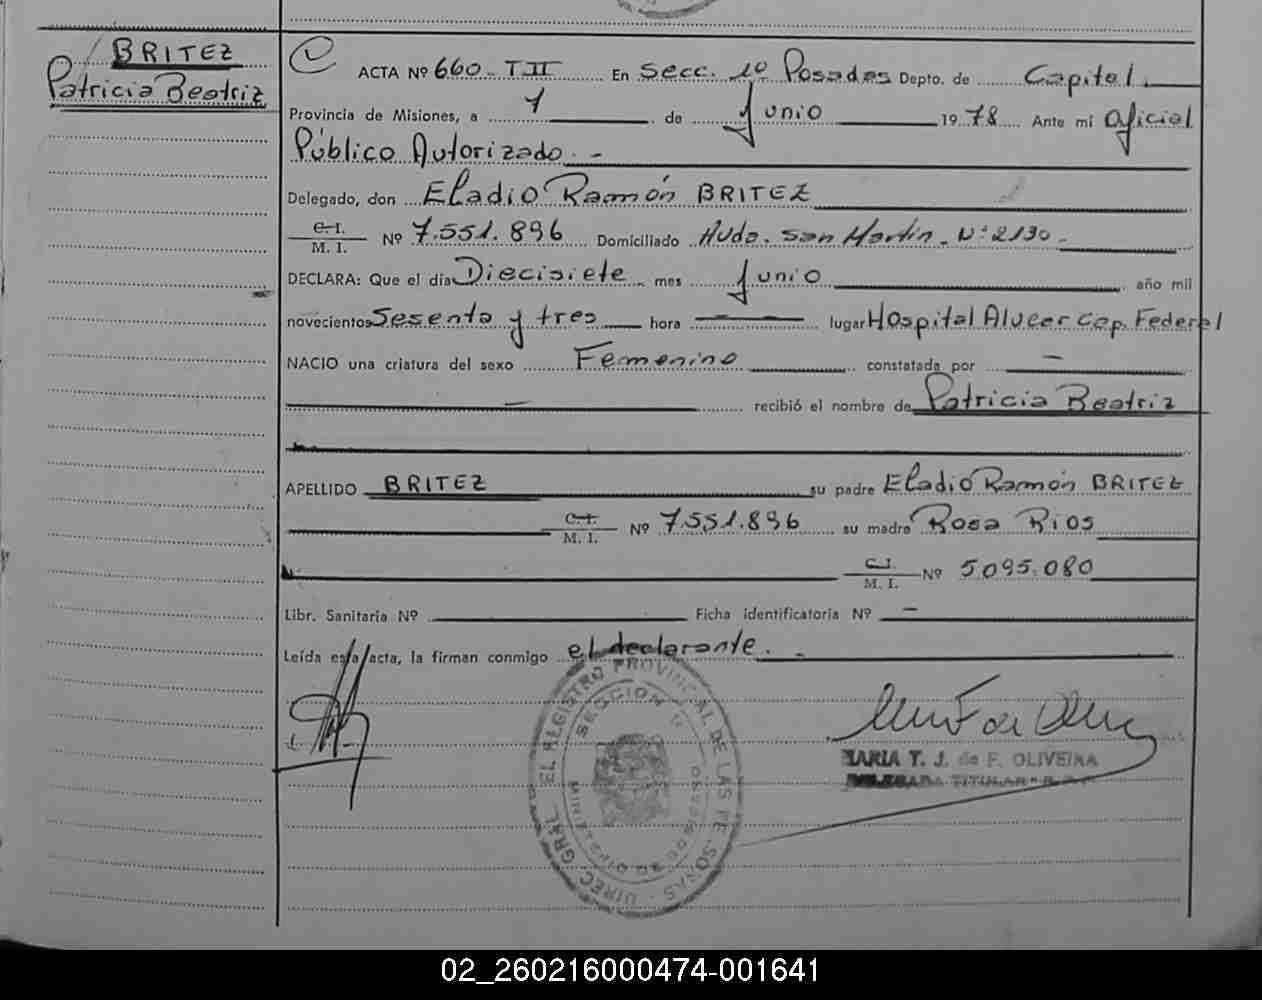 BRITEZ
Patricia Beatriz
ACTA Nº 660 - T II En Secc. 1º Posadas Depto. de Capital.
Provincia de Misiones, a 1 de Junio 1978 Ante mí Oficial
Público Autorizado. -
Delegado, don Eladio Ramón BRITEZ
C.I. M. I. Nº 7.551.896 Domiciliado Avda. San Martín. Nº 2130 -
DECLARA: Que el día Diecisiete mes Junio año mil
novecientos Sesenta y tres hora — lugar Hospital Alvear Cap. Federal
NACIO una criatura del sexo Femenino constatada por —
— recibió el nombre de Patricia Beatriz
APELLIDO BRITEZ su padre Eladio Ramón BRITEZ
C.I. M. I. Nº 7.551.896 su madre Rosa Rios
C.I. M. I. Nº 5095.080
Libr. Sanitaria Nº Ficha identificatoria Nº —
Leída esta acta, la firman conmigo el declarante. -
DIREC. GRAL. DEL REGISTRO PROVINCIAL DE LAS PERSONAS
SECCION
MARIA T. J. de F. OLIVEIRA
DELEGADA TITULAR
02_260216000474-001641